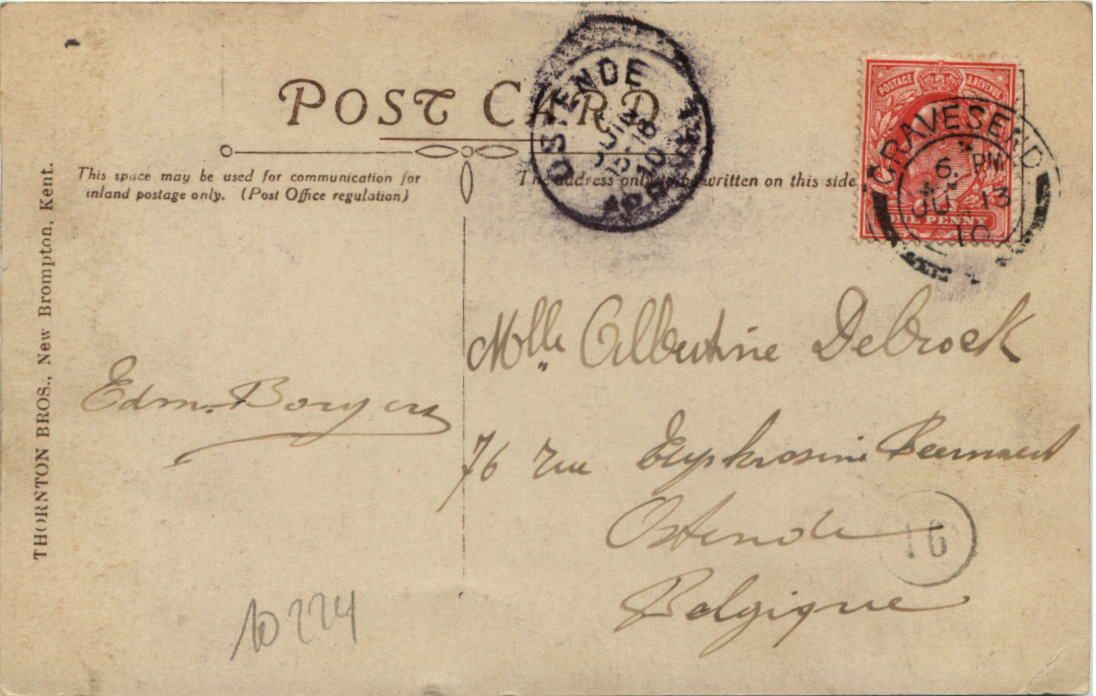 POST CARD
This space may be used for communication for
inland postage only. (Post Office regulation)
The address only written on this side
THORNTON BROS., New Brompton, Kent.
OSTENDE
JUIN
18
10
POSTAGE REVENUE
ONE PENNY
GRAVESEND
6. PM
JU 13
10
Mlle Albertine Debrock
76 rue Euphrosine Beernaert
Ostende
Belgique
16
Edm.
10224